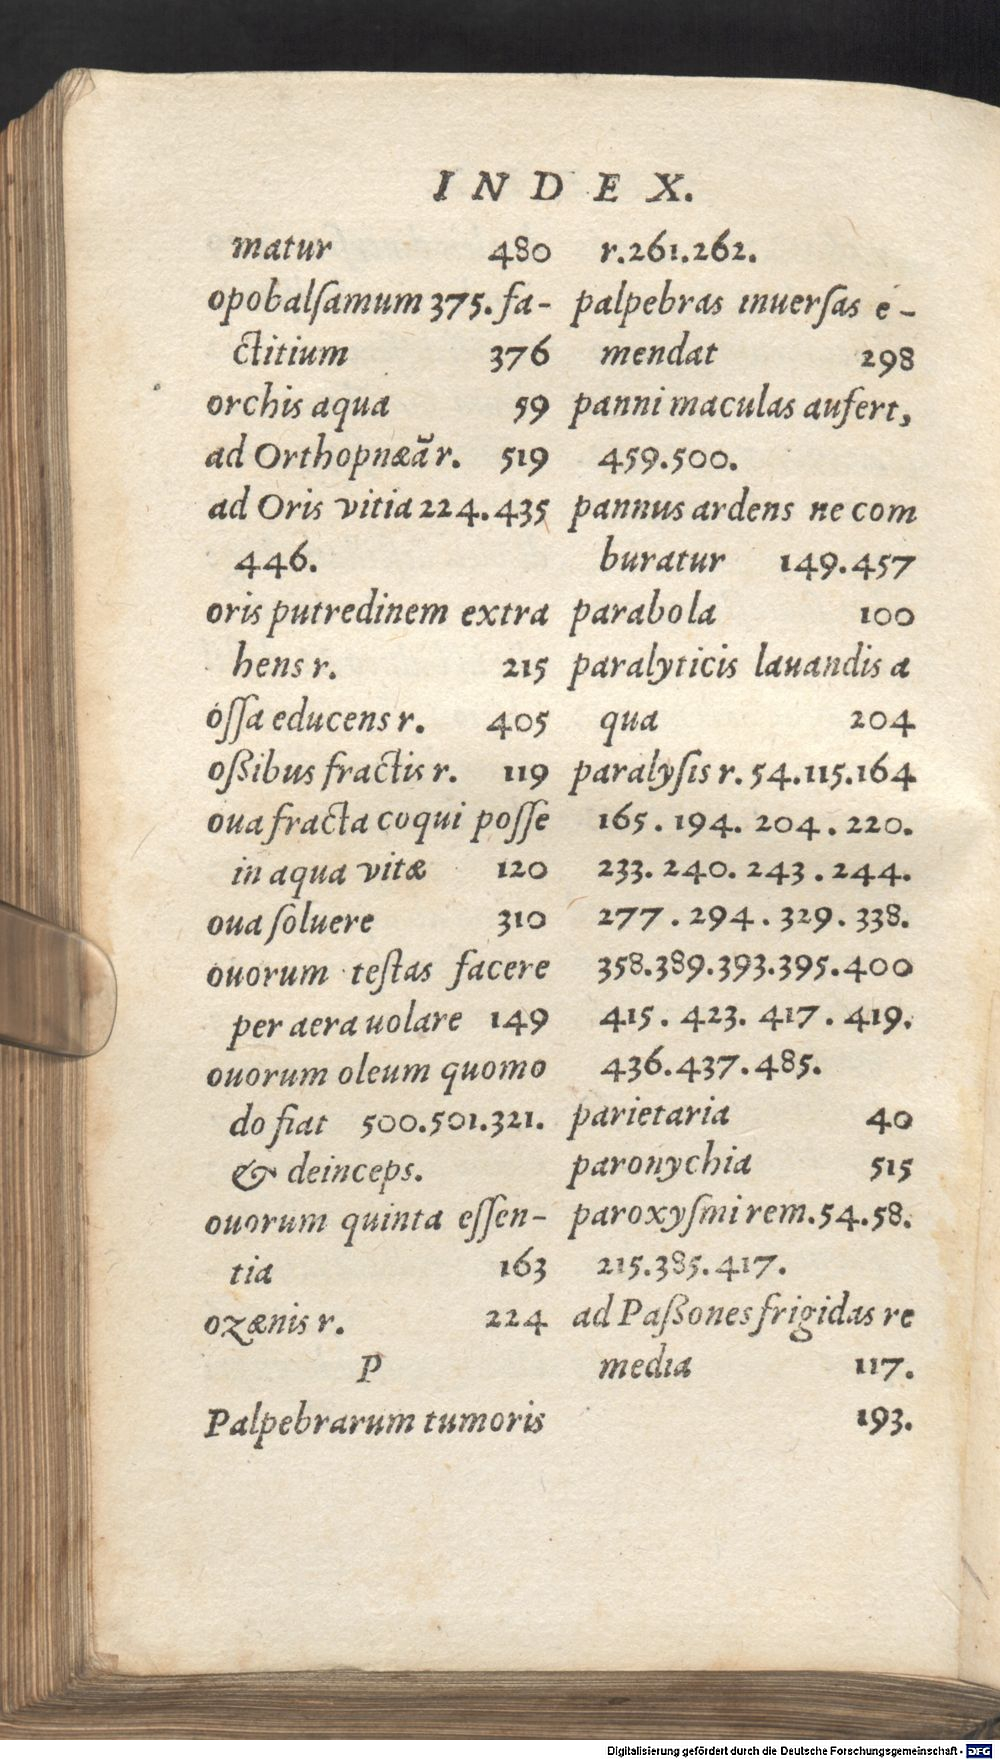 INDEX.
matur 480
opobalſamum 375. fa-
ctitium 376
orchis aqua 59
ad Orthopnæã r. 519
ad Oris vitia 224.435
446.
oris putredinem extra
hens r. 215
oſſa educens r. 405
oßibus fractis r. 119
oua fracta coqui poſſe
in aqua vitæ 120
oua ſoluere 310
ouorum teſtas facere
per aera uolare 149
ouorum oleum quomo
do fiat 500.501.321.
& deinceps.
ouorum quinta eſſen-
tia 163
ozænis r. 224
P
Palpebrarum tumoris
r.261.262.
palpebras inuerſas e-
mendat 298
panni maculas aufert,
459.500.
pannus ardens ne com
buratur 149.457
parabola 100
paralyticis lauandis a
qua 204
paralyſis r. 54.115.164
165. 194. 204. 220.
233. 240. 243. 244.
277. 294. 329. 338.
358.389.393.395.400
415. 423. 417. 419.
436.437.485.
parietaria 40
paronychia 515
paroxyſmi rem.54.58.
215.385.417.
ad Paßones frigidas re
media 117.
193.
Digitalisierung gefördert durch die Deutsche Forschungsgemeinschaft - DFG